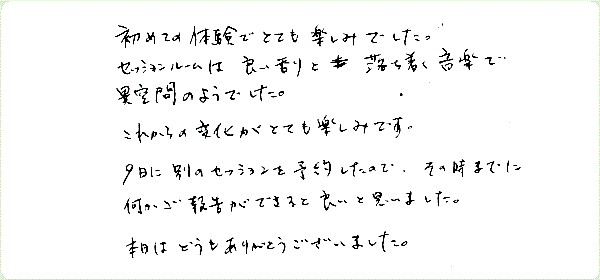 初めての体験でとても楽しみでした。
セッションルームは良い香りと落ち着く音楽で
異空間のようでした。
これからの変化がとても楽しみです。
9日に別のセッションを予約したので、その時までに
何かご報告ができると良いと思いました。
本日はどうもありがとうございました。